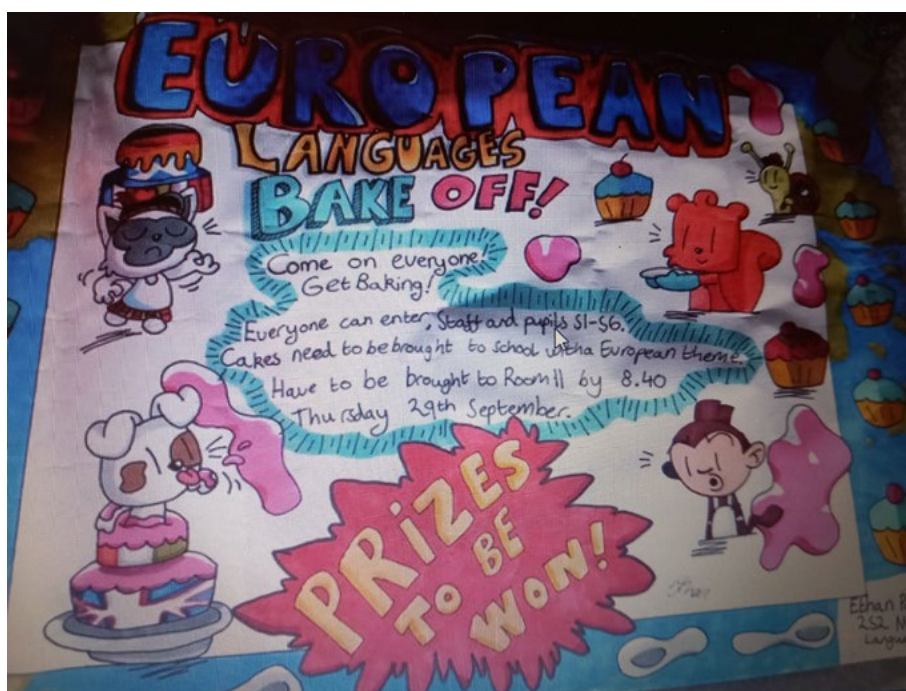 EUROPEAN
LANGUAGES
BAKE OFF!
Come on everyone!
Get Baking!
Everyone can enter, Staff and pupils S1-S6.
Cakes need to be brought to school with a European theme.
Have to be brought to Room 11 by 8.40
Thursday 29th September.
PRIZES
TO BE
WON!
Ethan
2S2